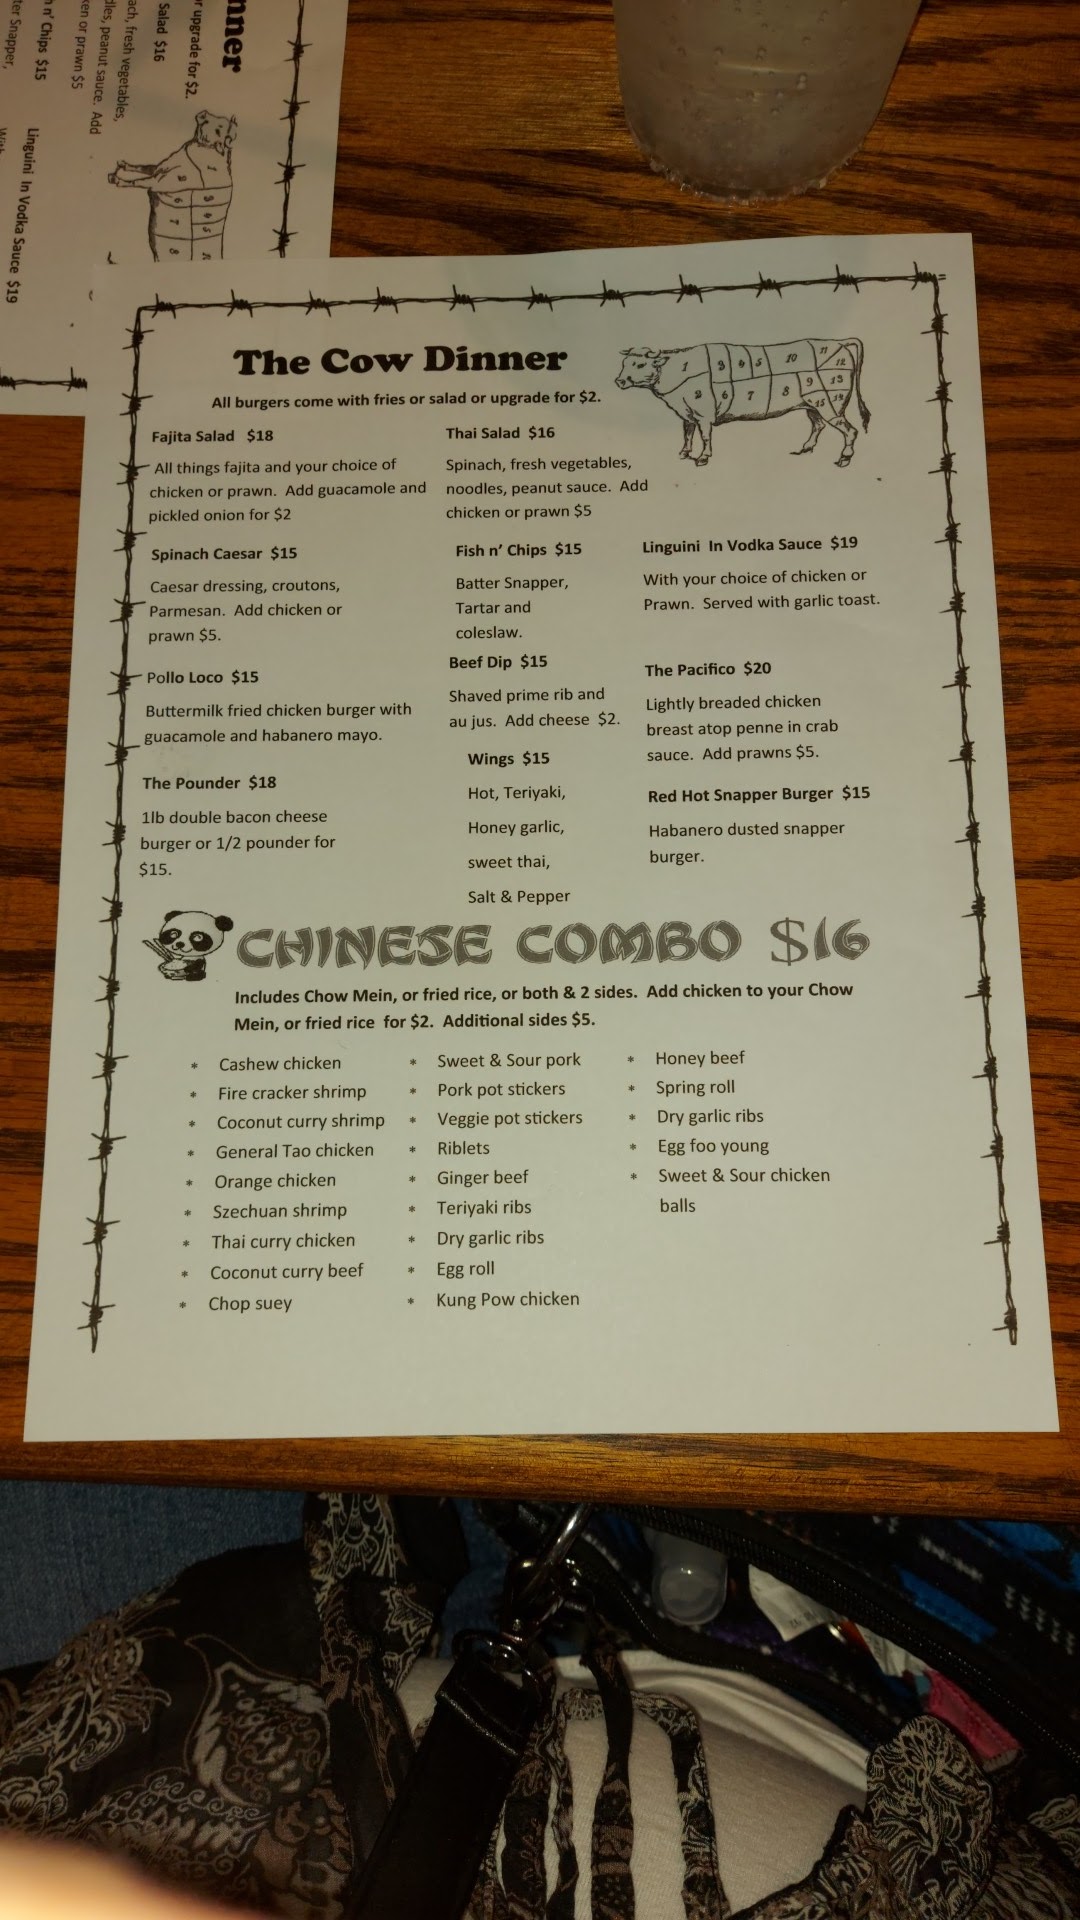 nner
r upgrade for $2.
Salad $16
ach, fresh vegetables,
dles, peanut sauce. Add
ken or prawn $5
n' Chips $15
ter Snapper,
Linguini In Vodka Sauce $19
1
2
3
4
5
6
7
8
The Cow Dinner
All burgers come with fries or salad or upgrade for $2.
1 2 3 4 5 6 7 8 9 10 11 12 13 14 15
Fajita Salad $18
All things fajita and your choice of
chicken or prawn. Add guacamole and
pickled onion for $2
Thai Salad $16
Spinach, fresh vegetables,
noodles, peanut sauce. Add
chicken or prawn $5
Spinach Caesar $15
Caesar dressing, croutons,
Parmesan. Add chicken or
prawn $5.
Fish n' Chips $15
Batter Snapper,
Tartar and
coleslaw.
Linguini In Vodka Sauce $19
With your choice of chicken or
Prawn. Served with garlic toast.
Pollo Loco $15
Buttermilk fried chicken burger with
guacamole and habanero mayo.
Beef Dip $15
Shaved prime rib and
au jus. Add cheese $2.
The Pacifico $20
Lightly breaded chicken
breast atop penne in crab
sauce. Add prawns $5.
The Pounder $18
1lb double bacon cheese
burger or 1/2 pounder for
$15.
Wings $15
Hot, Teriyaki,
Honey garlic,
sweet thai,
Salt & Pepper
Red Hot Snapper Burger $15
Habanero dusted snapper
burger.
CHINESE COMBO $16
Includes Chow Mein, or fried rice, or both & 2 sides. Add chicken to your Chow
Mein, or fried rice for $2. Additional sides $5.
* Cashew chicken
* Fire cracker shrimp
* Coconut curry shrimp
* General Tao chicken
* Orange chicken
* Szechuan shrimp
* Thai curry chicken
* Coconut curry beef
* Chop suey
* Sweet & Sour pork
* Pork pot stickers
* Veggie pot stickers
* Riblets
* Ginger beef
* Teriyaki ribs
* Dry garlic ribs
* Egg roll
* Kung Pow chicken
* Honey beef
* Spring roll
* Dry garlic ribs
* Egg foo young
* Sweet & Sour chicken
balls